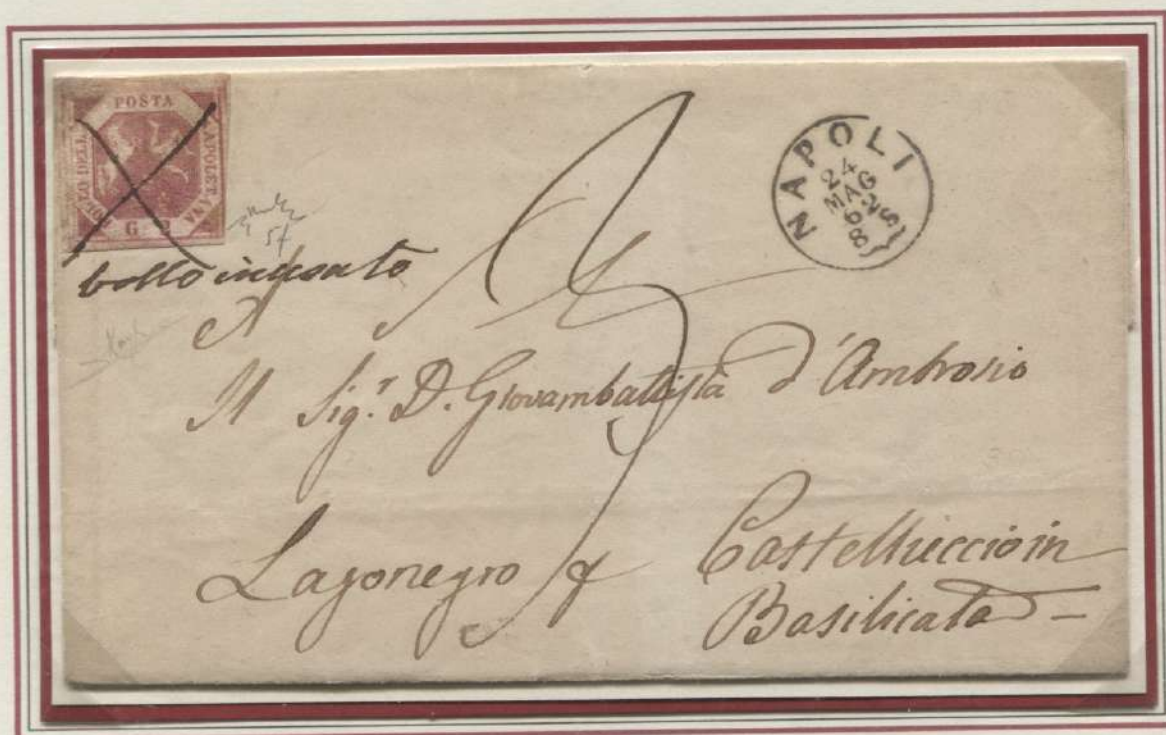 POSTA
NAPOLETANA
BOLLO DELLA
G. 2
NAPOLI
24
MAG
62
8 S
54
bollo inusato
A
Il Sig.r D. Giovambattista d'Ambrosio
Lagonegro
Castelluccio in
Basilicata